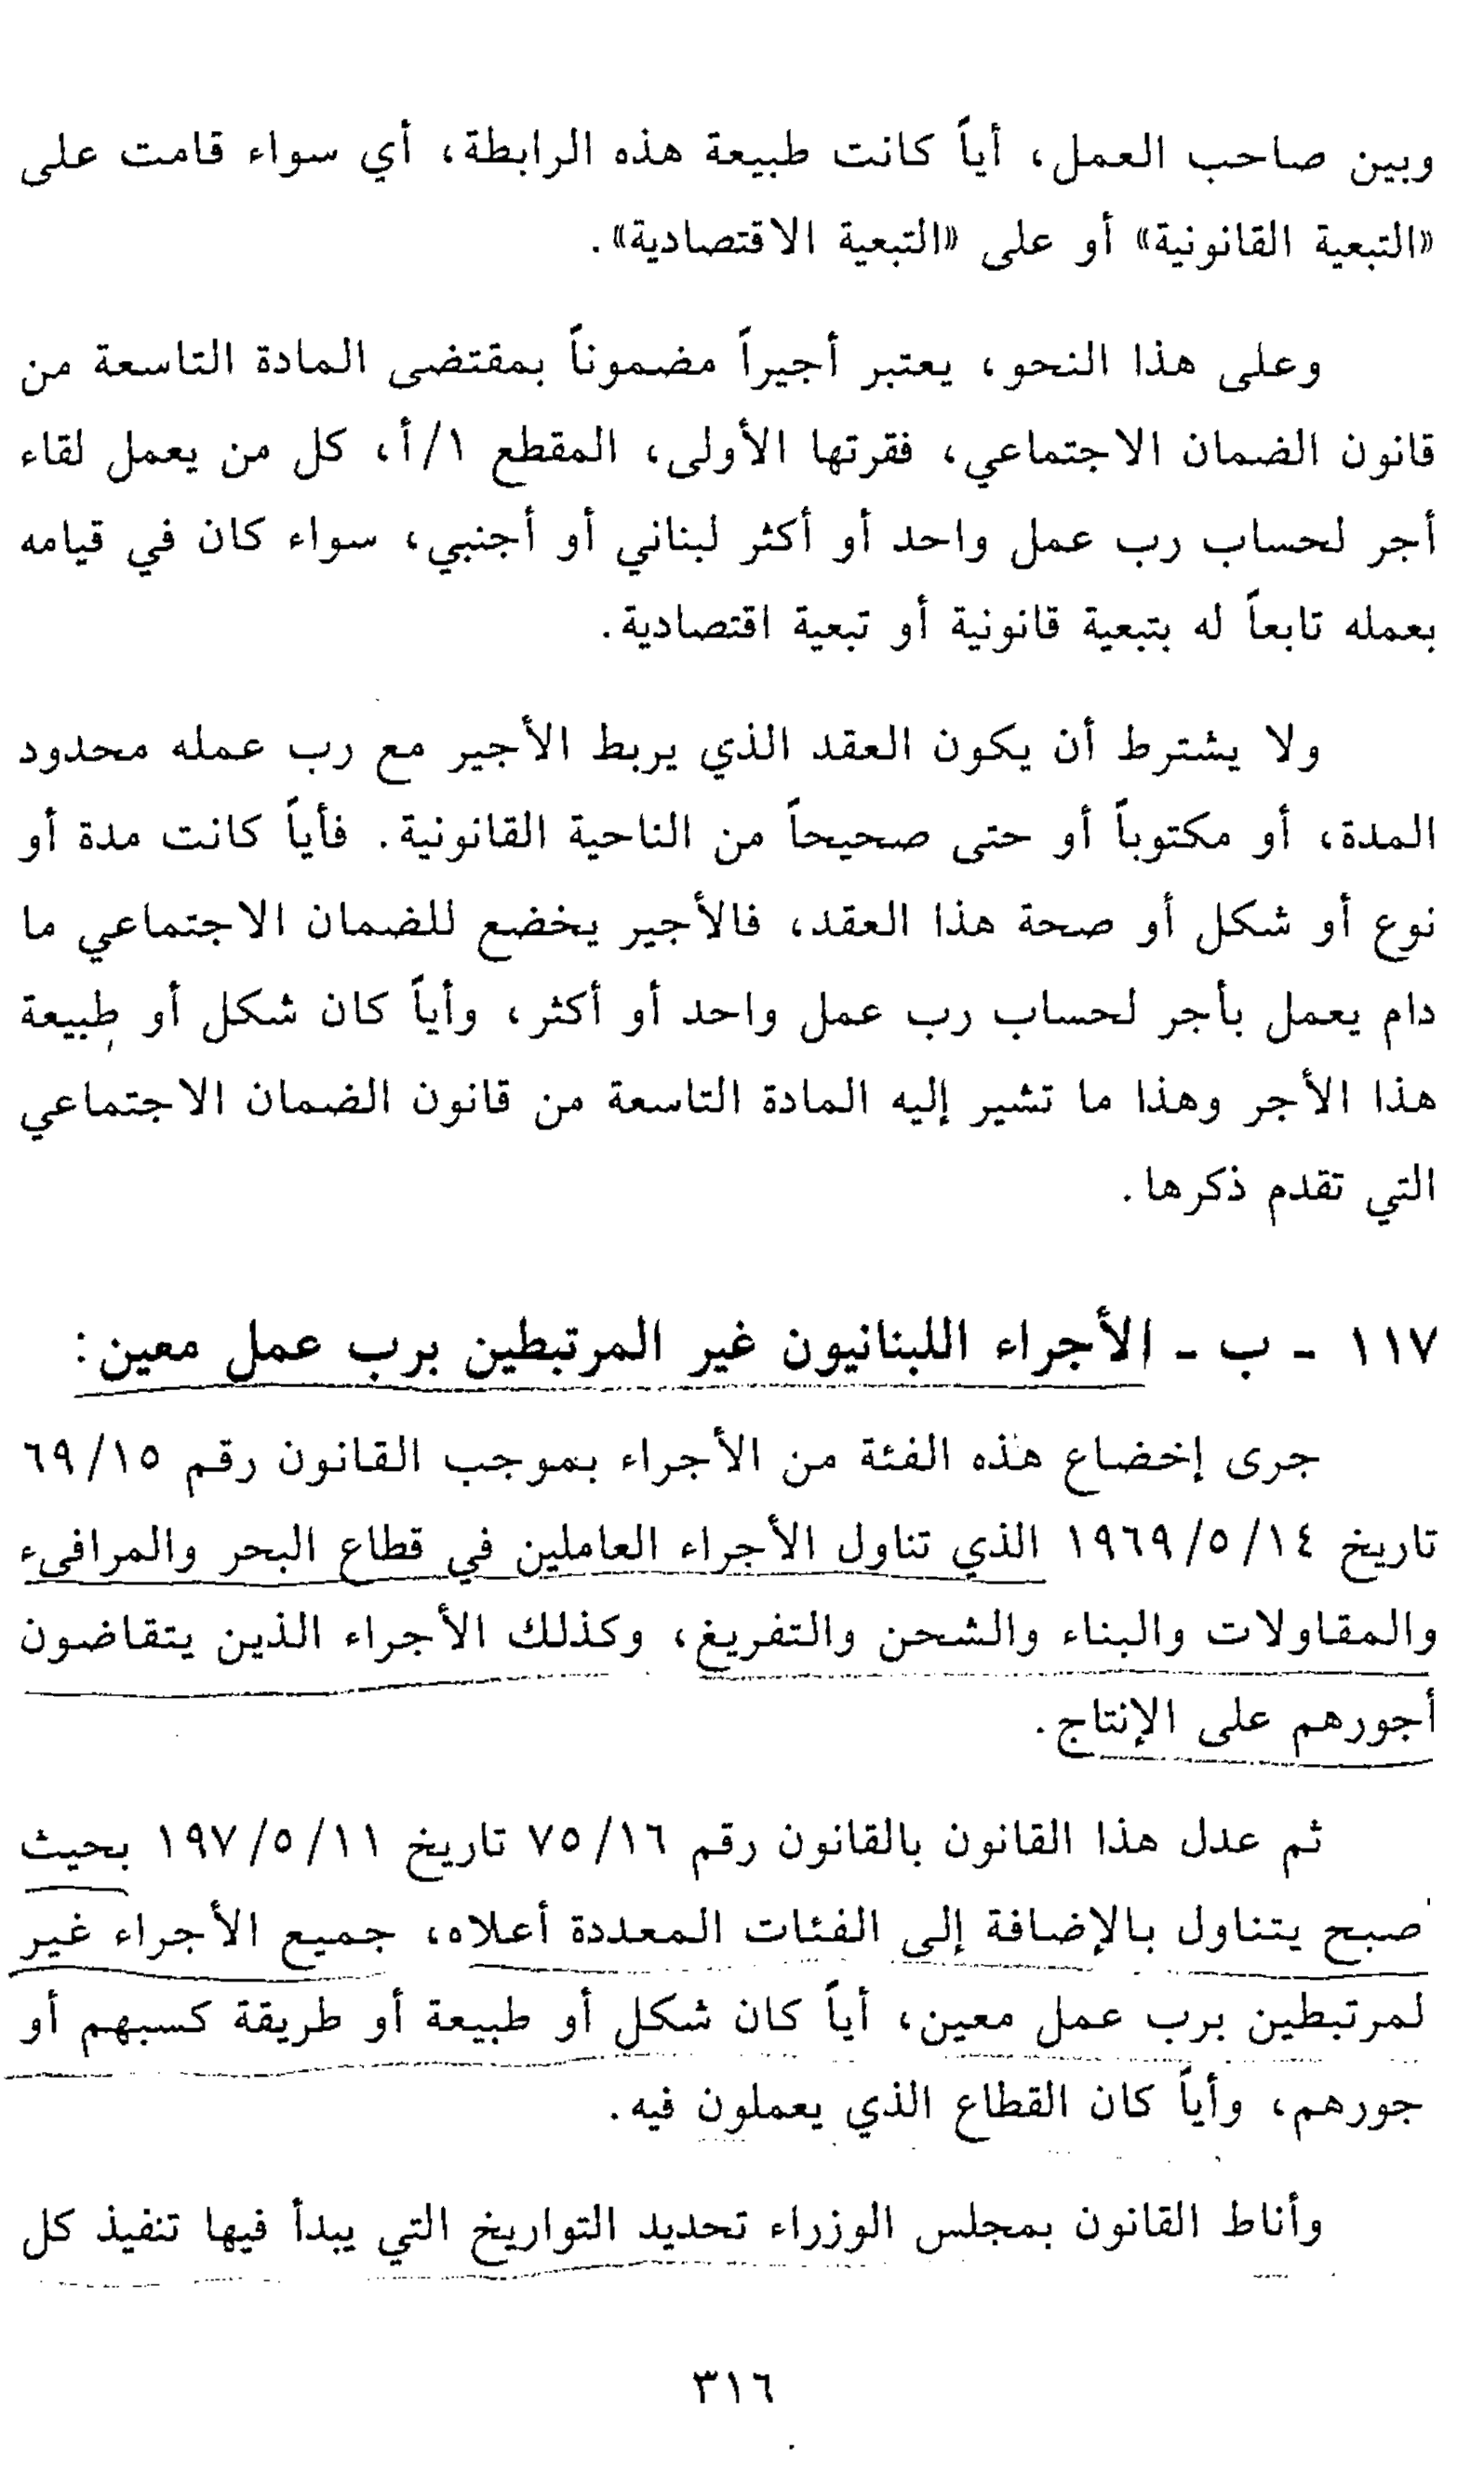 وبين صاحب العمل، أياً كانت طبيعة هذه الرابطة، أي سواء قامت على
«التبعية القانونية» أو على «التبعية الاقتصادية».
وعلى هذا النحو، يعتبر أجيراً مضموناً بمقتضى المادة التاسعة من
قانون الضمان الاجتماعي، فقرتها الأولى، المقطع ١/أ، كل من يعمل لقاء
أجر لحساب رب عمل واحد أو أكثر لبناني أو أجنبي، سواء كان في قيامه
بعمله تابعاً له بتبعية قانونية أو تبعية اقتصادية.
ولا يشترط أن يكون العقد الذي يربط الأجير مع رب عمله محدود
المدة، أو مكتوباً أو حتى صحيحاً من الناحية القانونية. فأياً كانت مدة أو
نوع أو شكل أو صحة هذا العقد، فالأجير يخضع للضمان الاجتماعي ما
دام يعمل بأجر لحساب رب عمل واحد أو أكثر، وأياً كان شكل أو طبيعة
هذا الأجر وهذا ما تشير إليه المادة التاسعة من قانون الضمان الاجتماعي
التي تقدم ذكرها.
١١٧ - ب - الأجراء اللبنانيون غير المرتبطين برب عمل معين:
جرى إخضاع هذه الفئة من الأجراء بموجب القانون رقم ٦٩/١٥
تاريخ ١٩٦٩/٥/١٤ الذي تناول الأجراء العاملين في قطاع البحر والمرافىء
والمقاولات والبناء والشحن والتفريغ، وكذلك الأجراء الذين يتقاضون
أجورهم على الإنتاج.
ثم عدل هذا القانون بالقانون رقم ٧٥/١٦ تاريخ ١٩٧/٥/١١ بحيث
صبح يتناول بالإضافة إلى الفئات المعددة أعلاه، جميع الأجراء غير
لمرتبطين برب عمل معين، أياً كان شكل أو طبيعة أو طريقة كسبهم أو
جورهم، وأياً كان القطاع الذي يعملون فيه.
وأناط القانون بمجلس الوزراء تحديد التواريخ التي يبدأ فيها تنفيذ كل
٣١٦